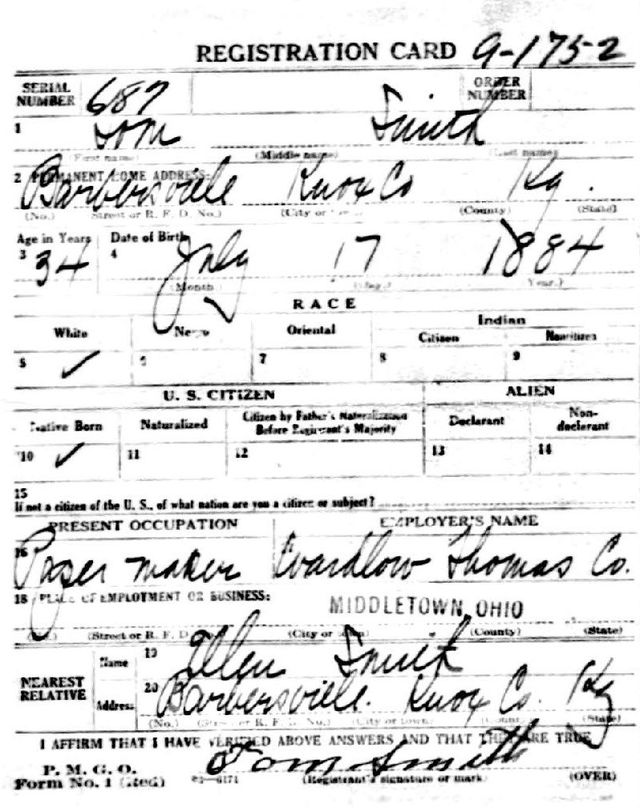 REGISTRATION CARD 9-175-2
SERIAL NUMBER 687 ORDER NUMBER
1 Tom Smith
(First name) (Middle name) (Last name)
2 PERMANENT HOME ADDRESS:
Barbersville Knox Co Ky.
(No.) Street or R. F. D. No.) (City or (County) (State)
Age in Years Date of Birth
3 34 4 July 17 1884
(Month) (Day) Year.)
RACE
White Negro Oriental Indian
Citizen Noncitizen
5 ✓ 6 7 8 9
U. S. CITIZEN ALIEN
Native Born Naturalized Citizen by Father's Naturalization Before Registrant's Majority Declarant Non-declarant
10 ✓ 11 12 13 14
15
If not a citizen of the U. S., of what nation are you a citizen or subject?
PRESENT OCCUPATION EMPLOYER'S NAME
16 Paper maker Wardlow Thomas Co.
18 PLACE OF EMPLOYMENT OR BUSINESS:
MIDDLETOWN, OHIO
(No.) (Street or R. F. D. (City or town) (County) (State)
NEAREST RELATIVE Name 19 Ellen Smith
Address 20 Barbersville. Knox Co. Ky
(No.) (Street or R. F. D. No.) (City or town) (County) (State)
I AFFIRM THAT I HAVE VERIFIED ABOVE ANSWERS AND THAT THEY ARE TRUE
P. M. G. O.
Form No. 1 (Red) Tom Smith
(Registrant's signature or mark) (OVER)